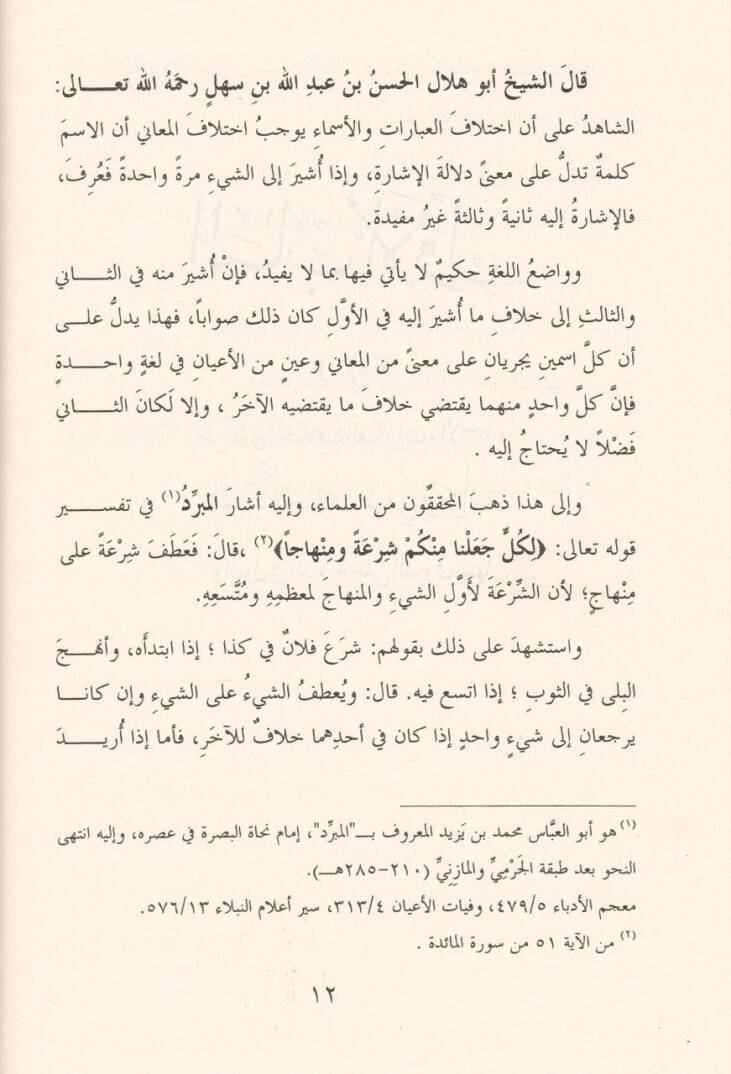 قالَ الشيخُ أبو هلال الحسنُ بنُ عبدِ الله بنِ سهلٍ رحمَهُ الله تعــالى:
الشاهدُ على أن اختلافَ العبارات والأسماءِ يوجبُ اختلافَ المعاني أن الاسمَ
كلمةٌ تدلُّ على معنىً دلالةَ الإشارةِ، وإذا أُشيرَ إلى الشيءِ مرةً واحدةً فَعُرِفَ،
فالإشارةُ إليه ثانيةً وثالثةً غيرُ مفيدة.
وواضعُ اللغةِ حكيمٌ لا يأتي فيها بما لا يفيدُ، فإنْ أُشيرَ منه في الثــاني
والثالثِ إلى خلافِ ما أُشيرَ إليه في الأوَّلِ كان ذلك صواباً، فهذا يدلُّ علــى
أن كلَّ اسمينِ يجريانِ على معنىً من المعاني وعينٍ من الأعيانِ في لغةٍ واحــدةٍ
فإنَّ كلَّ واحدٍ منهما يقتضي خلافَ ما يقتضيه الآخَرُ ، وإلا لَكانَ الثــاني
فَضْلاً لا يُحتاجُ إليه .
وإلى هذا ذهبَ المحققون من العلماء، وإليه أشارَ المبرِّدُ(١) في تفســير
قوله تعالى: ﴿لِكُلٍّ جَعَلْنا مِنْكُمْ شِرْعَةً ومِنْهاجاً﴾(٢) ،قالَ: فَعَطَفَ شِرْعَةً على
مِنْهاجٍ؛ لأن الشِّرْعَةَ لأوَّلِ الشيءِ والمنهاجَ لمعظمِهِ ومُتَّسَعِهِ.
واستشهدَ على ذلك بقولهم: شرَعَ فلانٌ في كذا ؛ إذا ابتدأه، وأنهــجَ
البِلى في الثوبِ ؛ إذا اتسع فيه. قال: ويُعطفُ الشيءُ على الشيءِ وإن كانــا
يرجعانِ إلى شيءٍ واحدٍ إذا كان في أحدِهما خلافٌ للآخَرِ، فأما إذا أُريــدَ
(١) هو أبو العبَّاس محمد بن يَزيد المعروف بــ"المبرِّد"، إمام نحاة البصرة في عصره، وإليه انتهى
النحو بعد طبقة الجَرْميِّ والمازِنيِّ (٢١٠-٢٨٥هــ).
معجم الأدباء ٤٧٩/٥، وفيات الأعيان ٣١٣/٤، سير أعلام النبلاء ٥٧٦/١٣.
(٢) من الآية ٥١ من سورة المائدة .
١٢